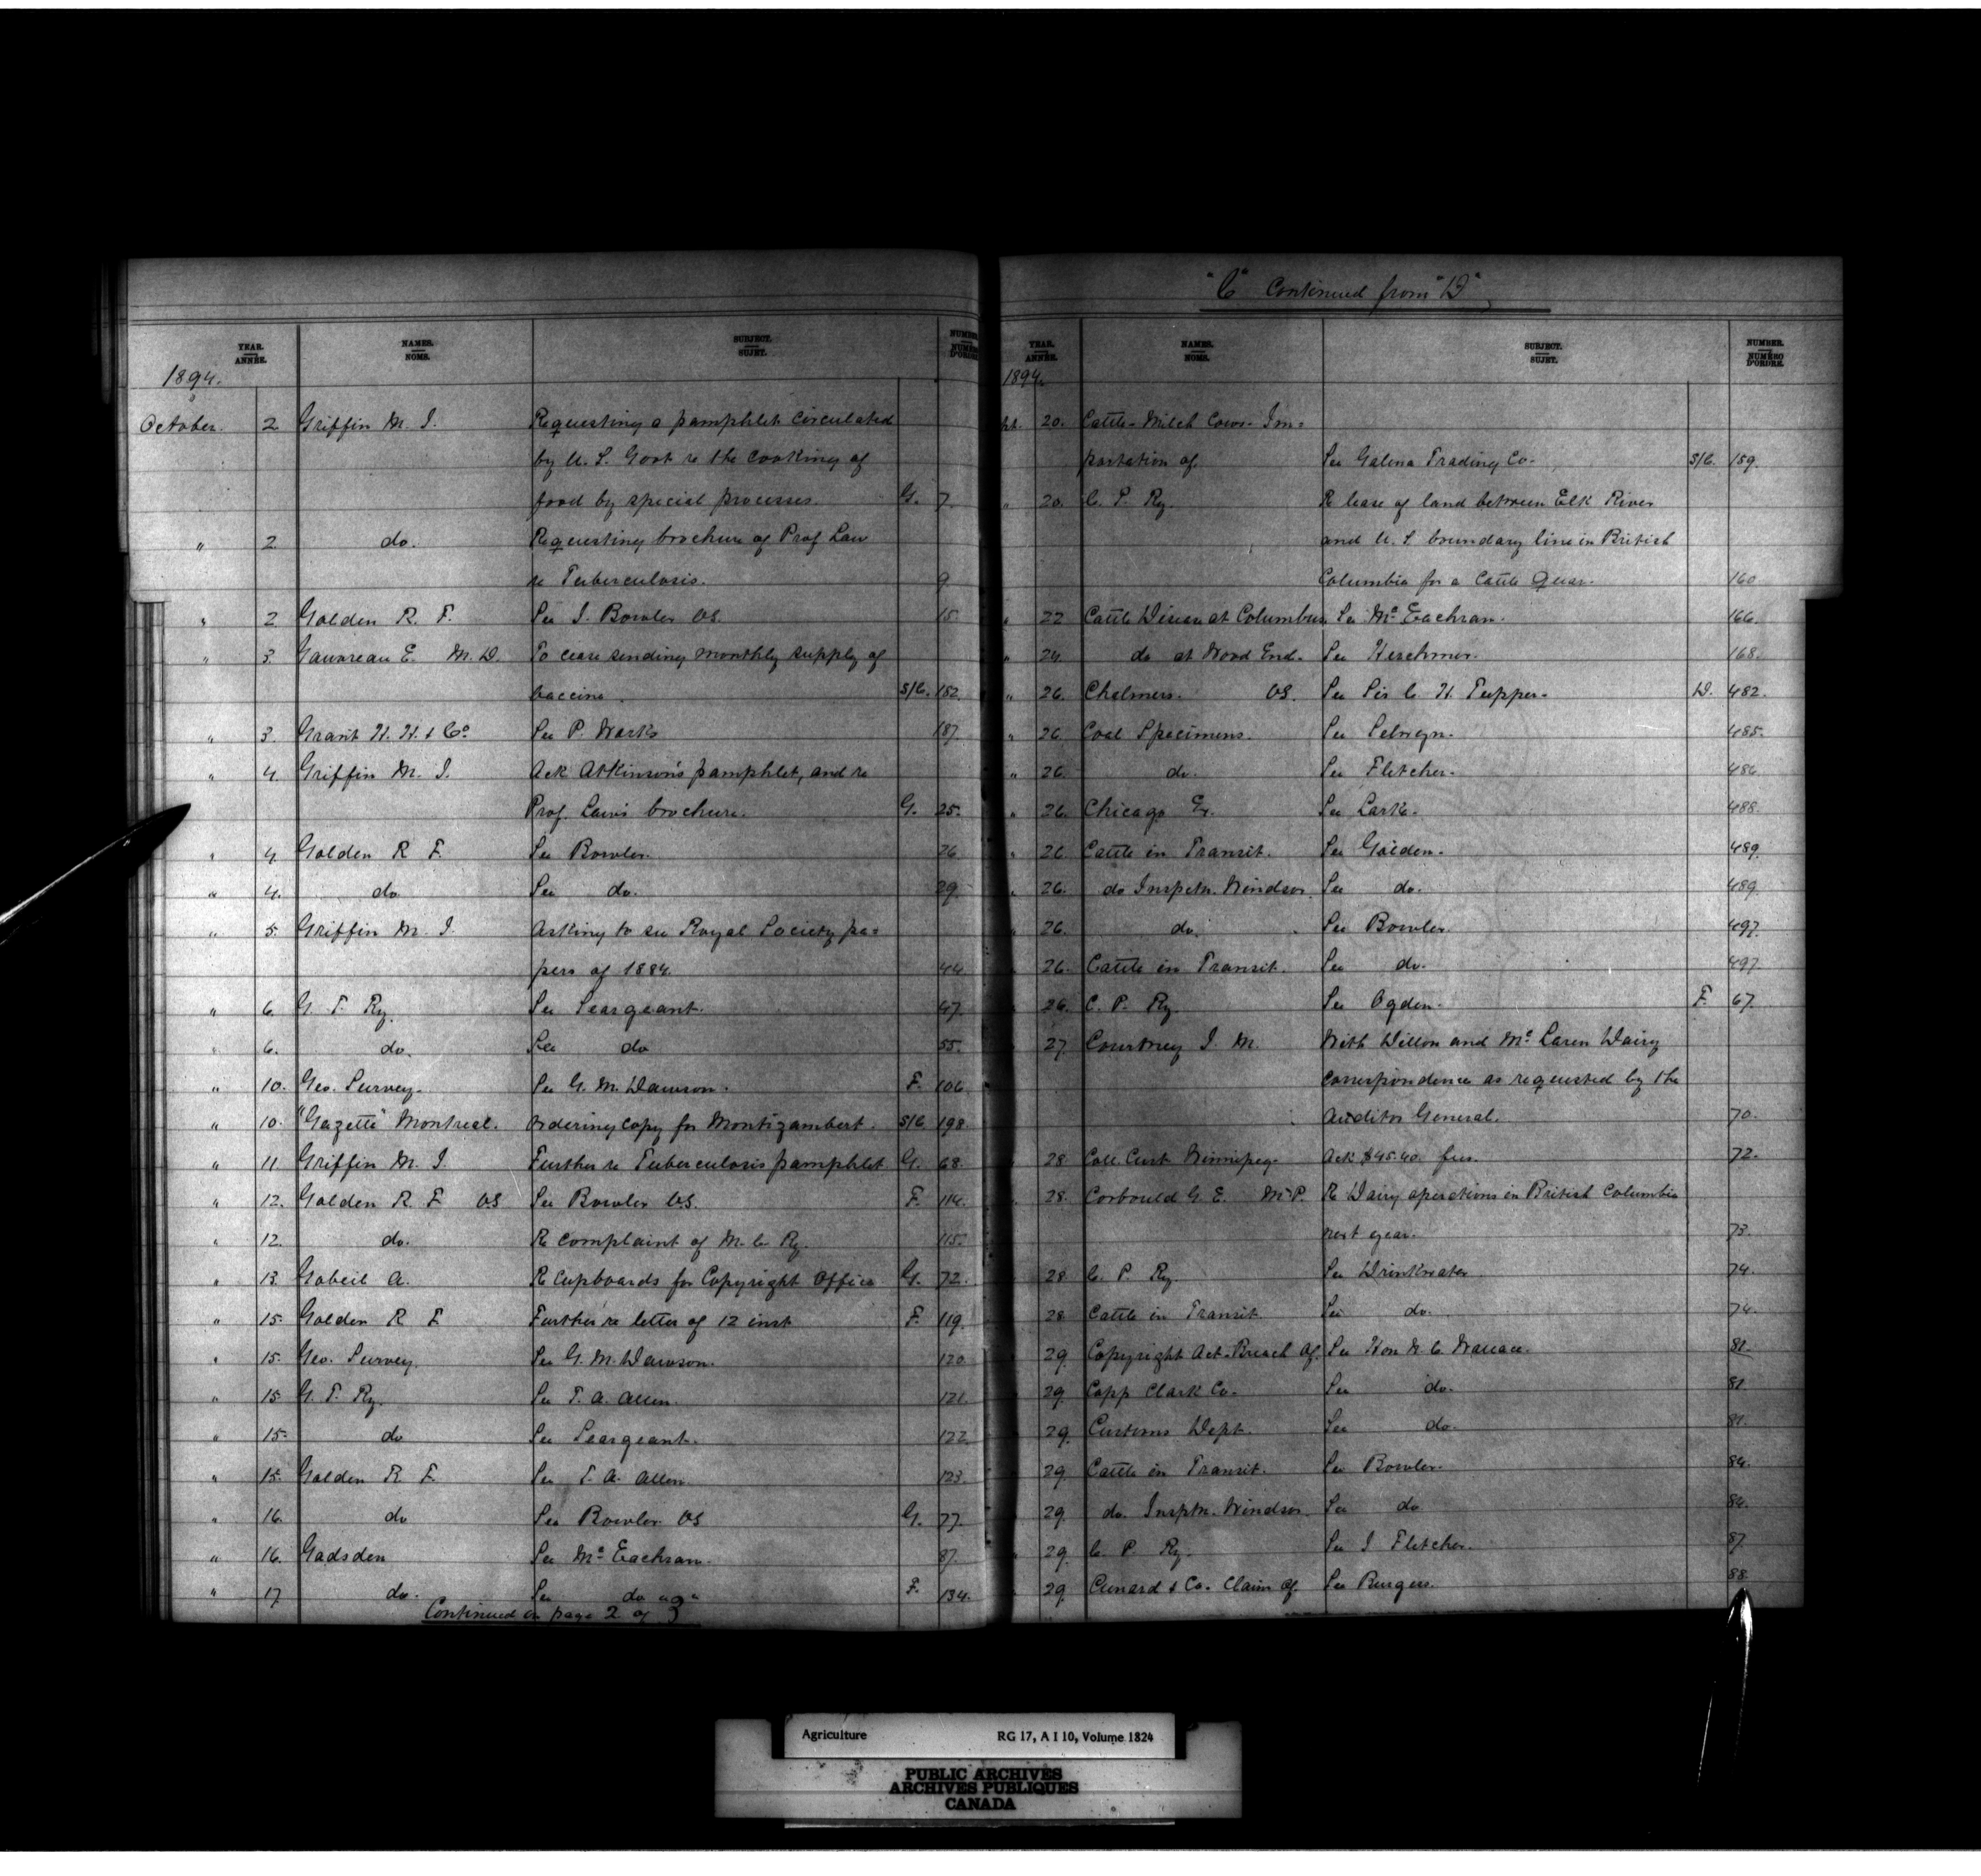 YEAR. ANNÉE. NAMES. NOMS. SUBJECT. SUJET. NUMBER NUMÉRO D'ORDRE
1894.
October. 2 Griffin M. J. Requesting a pamphlet circulated
by U. S. Govt re the cooking of
food by special processes. G. 7
" 2 do. Requesting brochure of Prof Law
re Tuberculosis. 9
" 2 Golden R. F. See J. Bowler VS. 15
" 3. Gauvreau E. M.D. To cease sending monthly supply of
vaccine. S/C. 182.
" 3. Grant H. H. & Co See P. Marks 187
" 4. Griffin M. J. Ack Atkinson's pamphlet, and re
Prof. Law's brochure. G. 25.
" 4. Golden R F. See Bowler. 26
" 4. do See do. 29.
" 5. Griffin M. J. Asking to see Royal Society pa=
pers of 1884. 44.
" 6. G. T. Ry. See Seargeant. 47.
" 6. do. See do 55.
" 10. Geo. Survey. See G. M. Dawson. F. 106.
" 10. "Gazette" Montreal. Ordering copy for Montizambert. S/C 198.
" 11. Griffin M. J. Further re Tuberculosis pamphlet G. 68.
" 12. Golden R. F. VS See Bowler V.S. F. 114.
" 12. do. Re complaint of M. C. Ry. 115.
" 13. Gobeil A. Re Cupboards for Copyright Office G. 72.
" 15. Golden R F. Further re letter of 12 inst F. 119.
" 15. Geo. Survey. See G. M. Dawson. 120.
" 15 G. T. Ry. See T. A. Allen. 121.
" 15. do See Seargeant. 122.
" 15. Golden R F. See T. A. Allen. 123.
" 16. do See Bowler VS G. 77.
" 16. Gadsden See Mc Eachran. 87.
" 17 do. See do F. 134.
Continued on page 2 of "J"
"C" Continued from "D"
YEAR. ANNÉE. NAMES. NOMS. SUBJECT. SUJET. NUMBER. NUMÉRO D'ORDRE.
1894.
pt. 20. Cattle - Milch Cows - Im=
portation of. See Galena Trading Co. S/C. 159.
" 20. C. P. Ry. Re lease of land between Elk River
and U. S boundary line in British
Columbia for a Cattle Quar. 160
" 22 Cattle Disease at Columbus, See Mc Eachran. 166.
" 24. do at Wood End. See Herchmer. 168.
" 26. Chalmers. VS. See Sir C H. Tupper. D. 482.
" 26. Coal Specimens. See Selwyn. 485.
" 26. do. See Fletcher. 486
" 26. Chicago Ex. See Larke. 488.
" 26 Cattle in Transit. See Golden. 489.
" 26. do Inspctn. Windsor. See do. 489
" 26. do. See Bowler. 497.
" 26. Cattle in Transit. See do. 497
" 26. C. P. Ry. See Ogden. F. 67.
27. Courtney J. M. With Dillon and Mc Laren Dairy
correspondence as requested by the
Auditor General. 70.
28 Coll. Cust. Winnipeg. Ack $45.40. fees. 72.
28. Corbould G. E. M.P. Re Dairy operations in British Columbia
next year. 73.
28 C. P. Ry. See Drinkwater. 74.
28. Cattle in Transit See do. 74.
29. Copyright Act - Breach of. See Hon N. C. Wallace. 81.
29. Copp Clark Co. See do. 81
29. Customs Dept. See do. 81.
29. Cattle in Transit. See Bowler. 84.
29. do. Insptn. Windsor. See do 84.
29. C. P. Ry. See J Fletcher. 87.
29. Cunard & Co. Claim of. See Burgess. 88.
Agriculture RG 17, A I 10, Volume 1824
PUBLIC ARCHIVES
ARCHIVES PUBLIQUES
CANADA